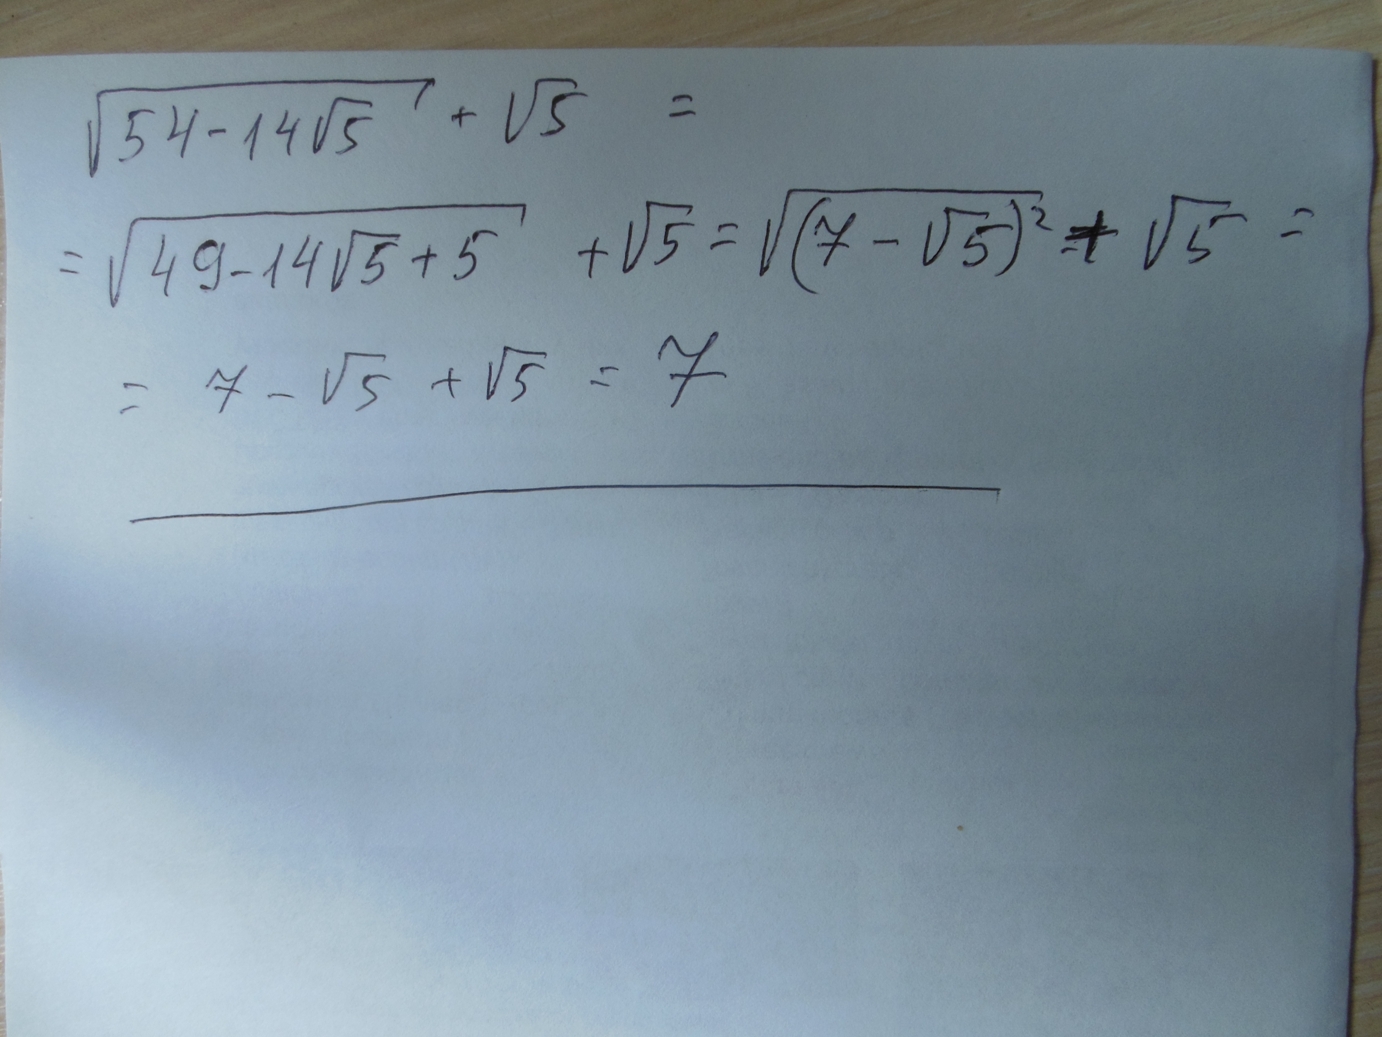 √(54-14√5) + √5 =
= √(49-14√5+5) + √5 = √((7-√5)²) + √5 =
= 7 - √5 + √5 = 7